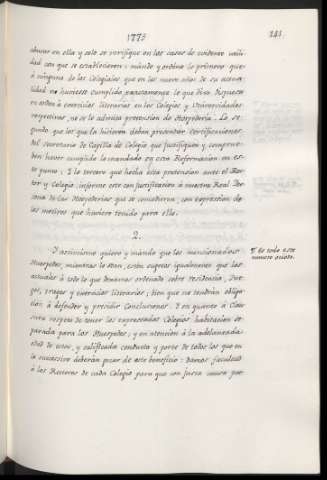 1773
241.
abusar en ella y solo se verifique en los casos de evidente utili-
dad con que se establecieron: mando y ordeno lo primero que
à ninguno de los Colegiales que en los nueve años de su actua-
lidad no huviese cumplido exactamente lo que dixo dispuesto
en orden à exercicios literarios en los Colegios y Universidades
respectivas, no se le admita pretension de Hospederia. Lo se-
gundo que los que la hicieren deban presentar Certificaciones
del Secretario de Capilla de Colegio que justifiquen y comprue-
ben haver cumplido lo mandado en esta Reformacion en es-
te punto; I lo tercero que hecha esta pretension ante el Rec-
tor y Colegio, informe este con justificacion à nuestra Real Per-
sona de las Hospederias que se concedieren, con expresion de
los motivos que huviere tenido para ello.
2.
Y asimismo quiero y mando que los mencionados
Huespedes, mientras lo sean, estèn sugetos igualmente que los
actuales à todo lo que devamos ordenado sobre residencia, Jue-
gos, trages y exercicios literarios; bien que no tendran obliga-
cion à defender y presidir Conclusiones. I en quanto à Clau-
sura respeto de tener los expresados Colegios habitacion se-
parada para los Huespedes; y en atencion à la adelantada
edad de estos, y calificada conducta y porte de todos los que en
lo succesivo deberàn gozar de este beneficio: Damos facultad
à los Rectores de cada Colegio para que con justa causa pue-
de todo este
numero quinto.